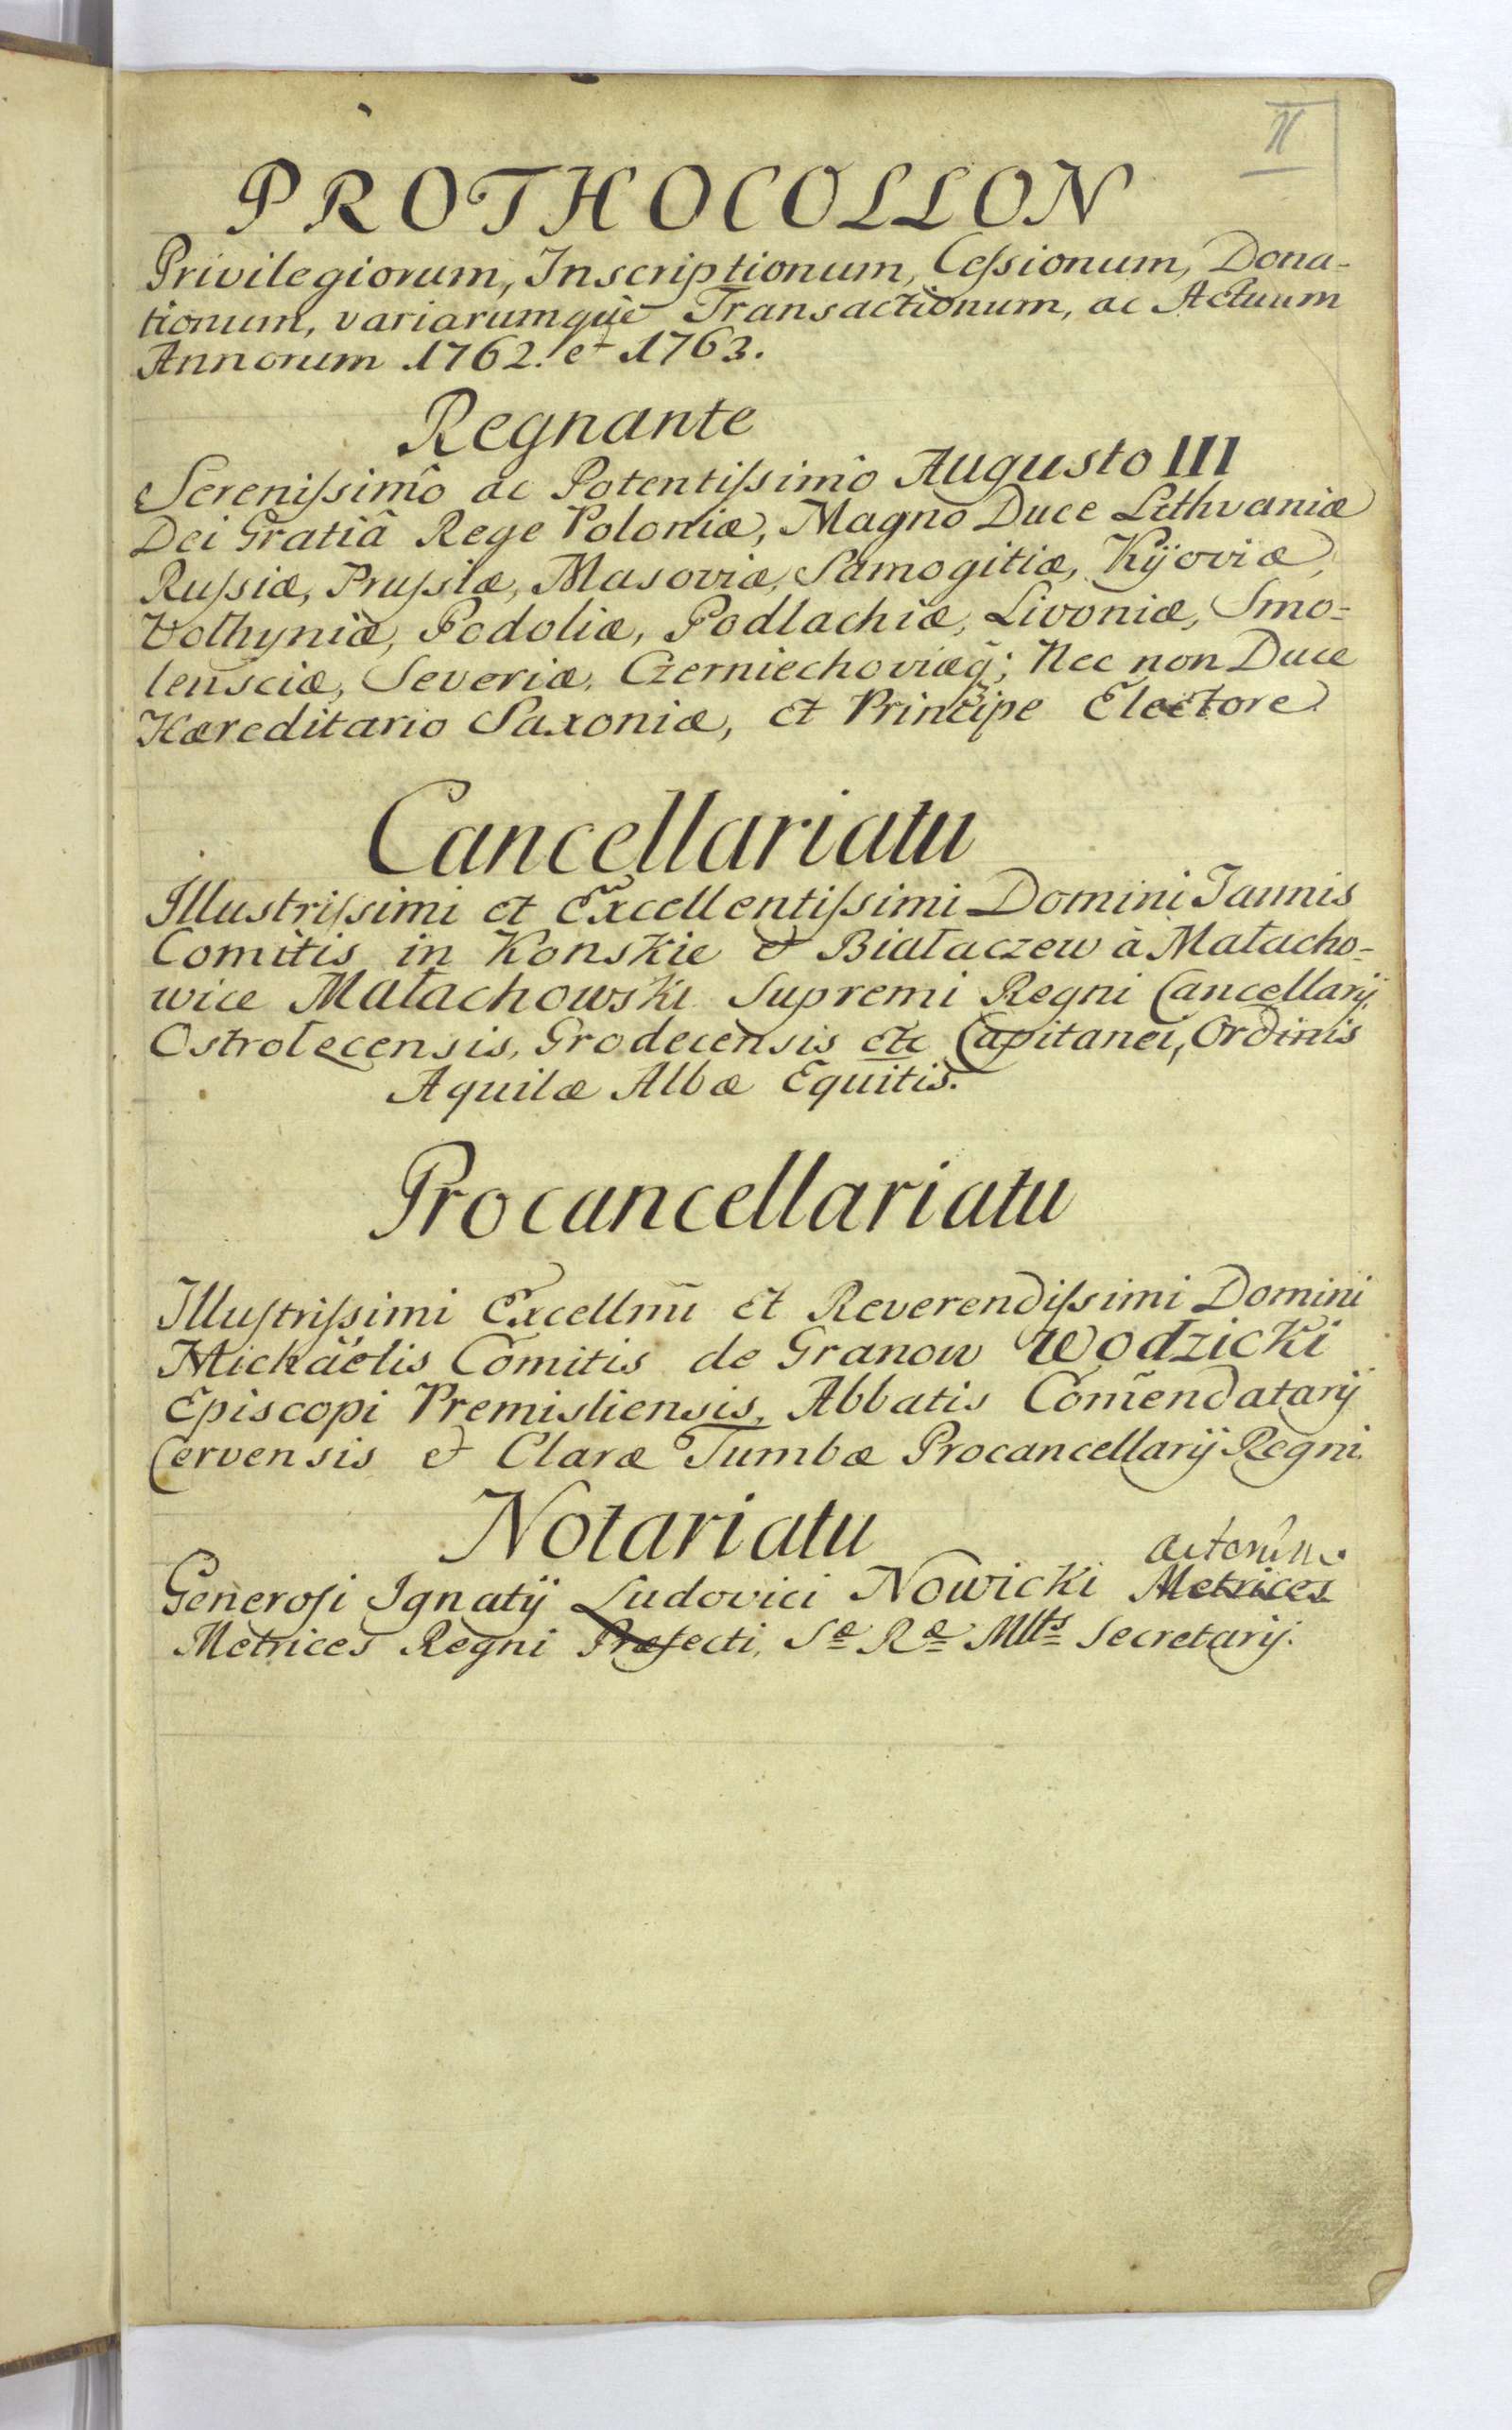 II
PROTHOCOLLON
Privilegiorum, Inscriptionum, Ceſsionum, Dona-
tionum, variarumquè Transactionum, ac Actuum
Annorum 1762. et 1763.
Regnante
Sereniſsimô ac Potentiſsimô Augusto III
Dei Gratiâ Rege Poloniæ, Magno Duce Lithvaniæ
Ruſsiæ, Pruſsiæ, Masoviæ, Samogitiæ, Kÿoviæ,
Volhyniæ, Podoliæ, Podlachiæ, Livoniæ, Smo=
lensciæ, Severiæ, Czerniechoviæq̃; Nec non Duce
Hæreditario Saxoniæ, et Principe Electore
Cancellariatu
Illustriſsimi et Excellentiſsimi Domini Joannis
Comitis in Konskie & Białaczew à Małacho=
wice Małachowski Supremi Regni Cancellarij,
Ostrołecensis, Grodecensis etc Capitanei, Ordinis
Aquilæ Albæ Equitis.
Procancellariatu
Illuſtriſsimi Excellmi et Reverendiſsimi Domini
Michaëlis Comitis de Granow Wodzicki
Episcopi Premisliensis, Abbatis Com̃endatarij
Cervensis & Claræ Tumbæ Procancellarij Regni.
Notariatu
actorum
Generoſi Ignatij Ludovici Nowicki Metrices
Metrices Regni Præfecti, Sæ Ræ Mtts Secretarij.